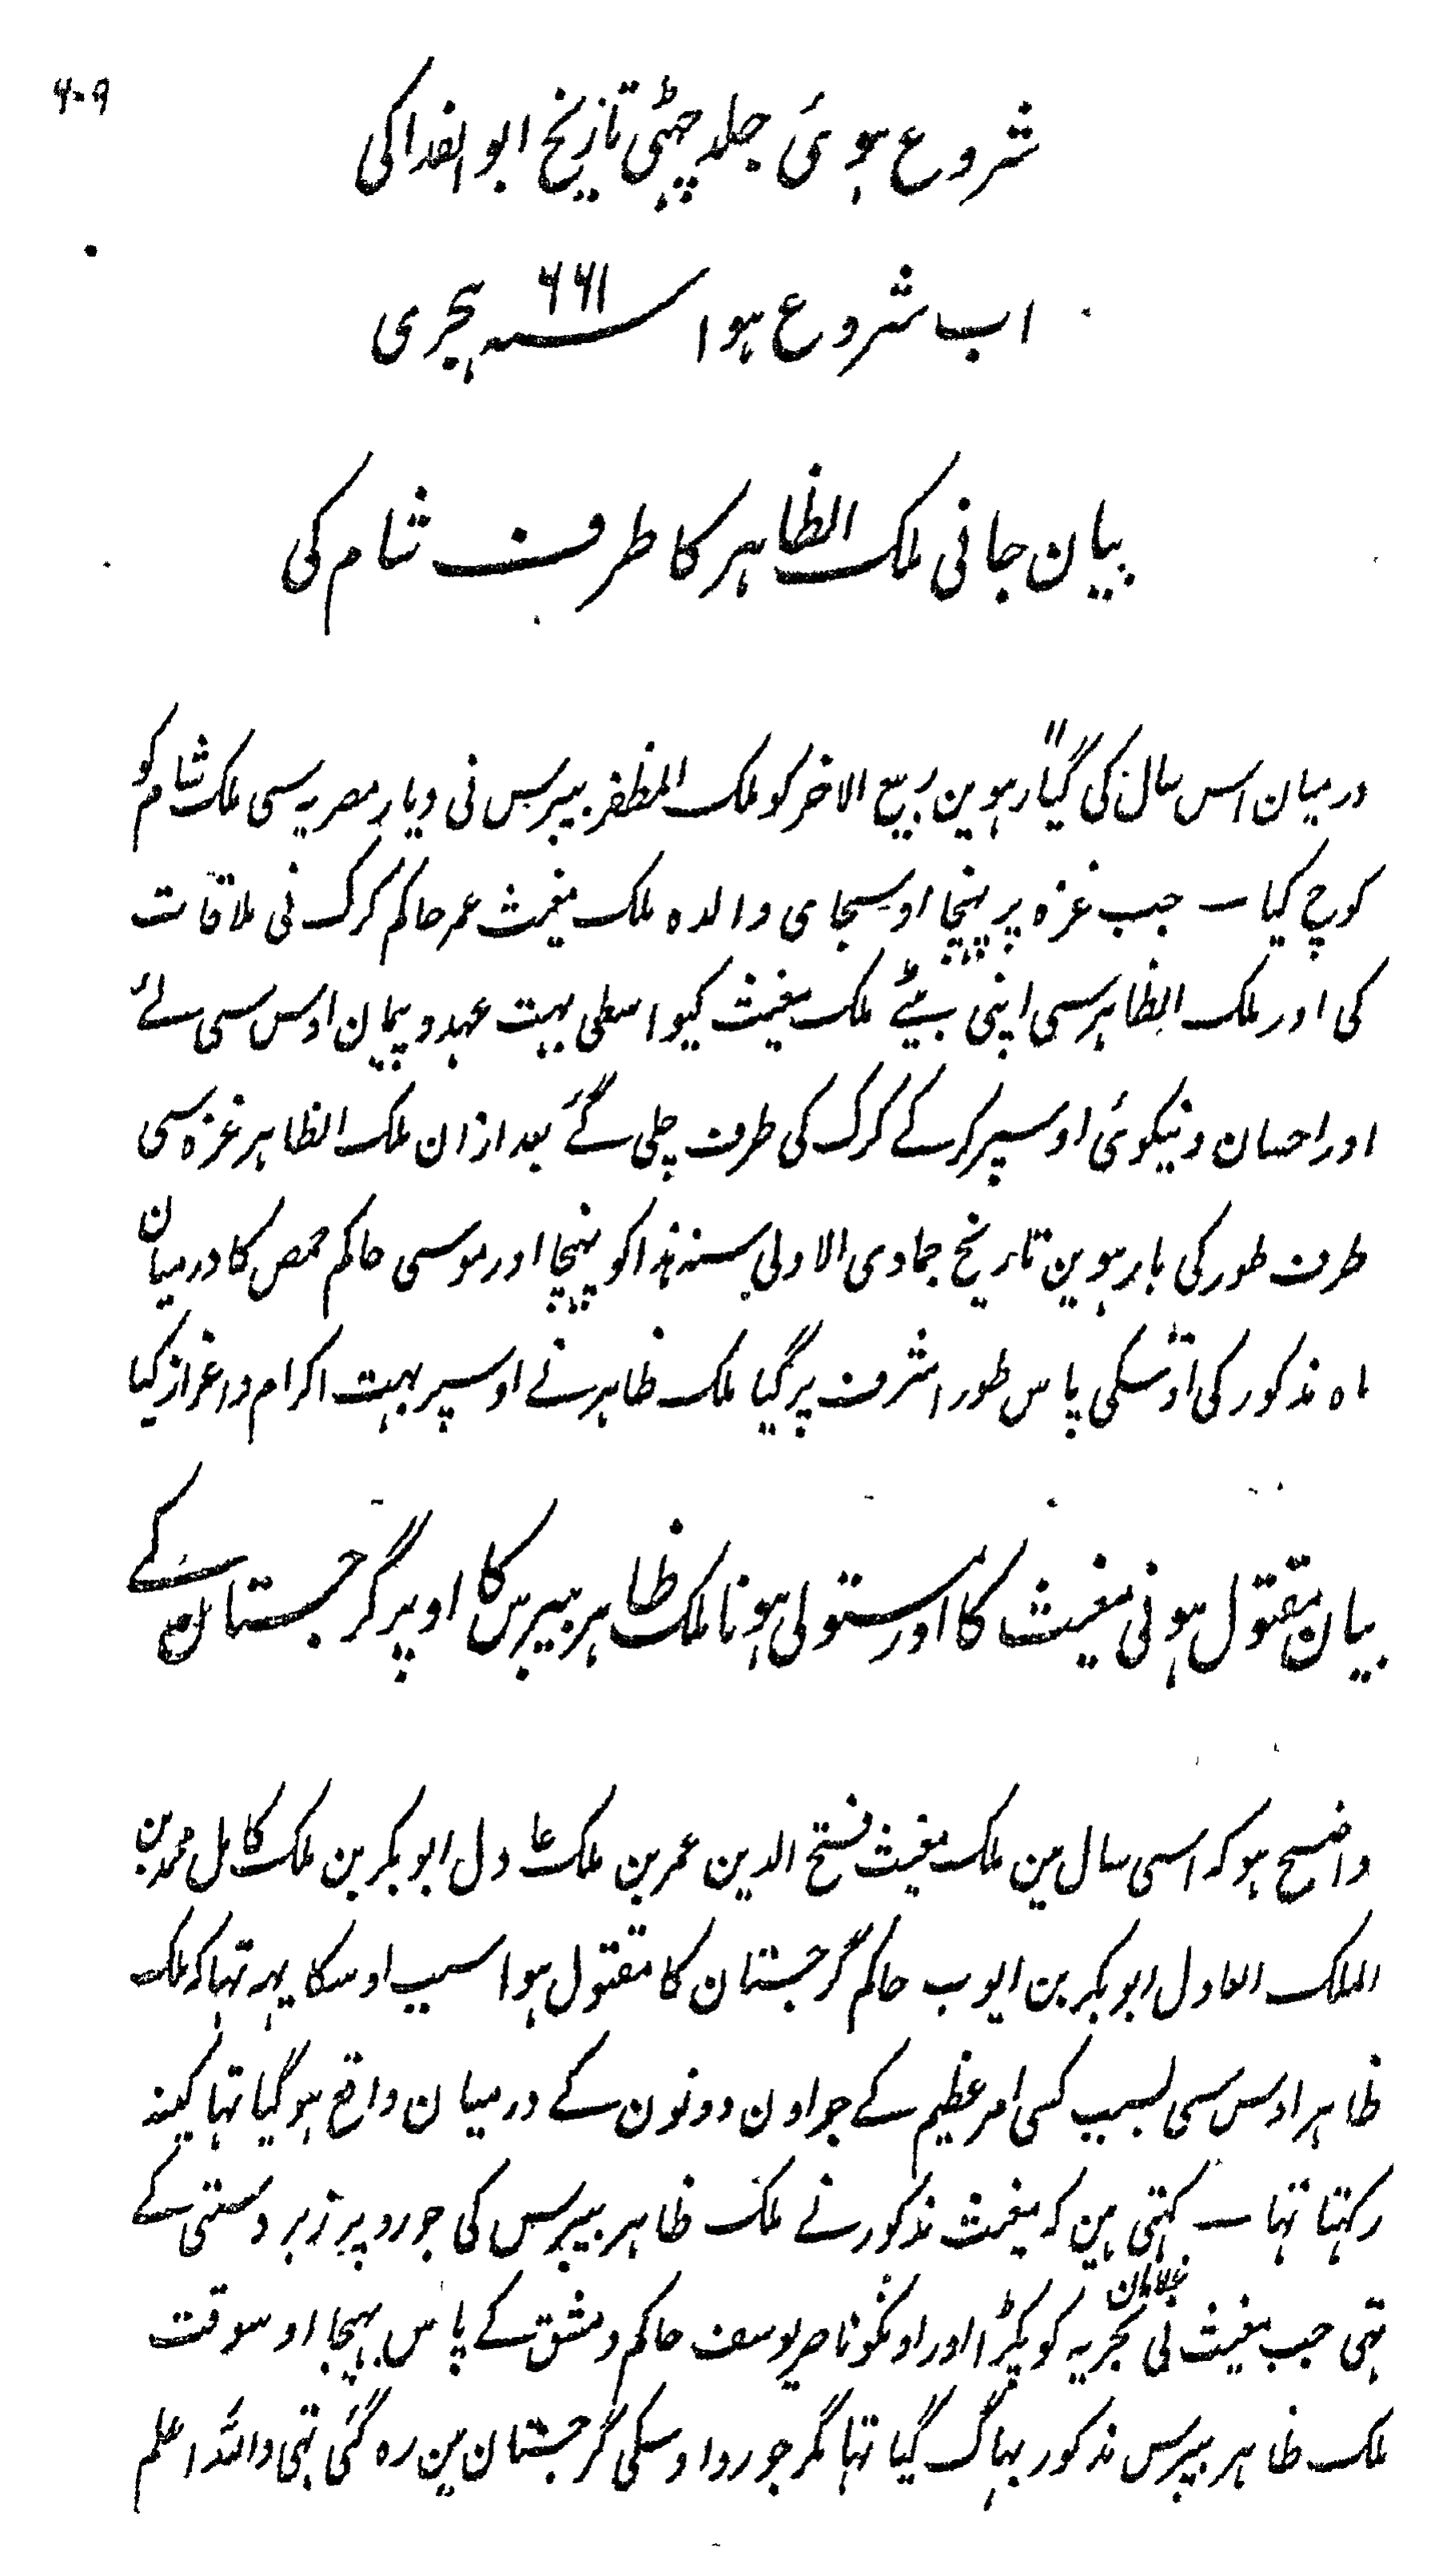 ۶۰۹
شروع ہوئی جلد چھٹی تاریخ ابو الفدا کی
اب شروع ہوا سنہ ۶۶۱ ہجری
بیان جانی ملک الظاہر کا طرف شام کی
درمیان اس سال کی گیارہوین ربیع الاخر کو ملک المظفر بیبرس نی دیار مصریہ سی ملک شام کو
کوچ کیا ــ جب غزہ پر پہنچا اوسجای والدہ ملک مغیث عمر حاکم کرک نی ملاقات
کی اور ملک الظاہر سی اپنی بیٹے ملک مغیث کیواسطی بہت عہد و پیمان اوس سی لئے
اور احسان ونیکوئی اوسپر کرکے کرک کی طرف چلی گئے بعد ازان ملک الظاہر غزہ سی
طرف طور کی بارہوین تاریخ جمادی الاولی سنہ ہذا کو پہنچا اور موسی حاکم حمص کا درمیان
ماہ مذکور کی اوسکی پاس طور اشرف پر گیا ملک ظاہر نے اوسپر بہت اکرام واعزاز کیا
بیان مقتول ہونی مغیث کا اور مستولی ہونا ملک ظاہر بیبرس کا اوپر گرجستان کے
واضح ہو کہ اسی سال مین ملک مغیث فتح الدین عمر بن ملک عادل ابو بکر بن ملک کامل محمد بن
الملک العادل ابو بکر بن ایوب حاکم گرجستان کا مقتول ہوا سبب اوسکا یہہ تہا کہ ملک
ظاہر اوس سی بسبب کسی امر عظیم کے جو اون دونون کے درمیان واقع ہوگیا تہا کینہ
رکہتا تہا ــ کہتی ہین کہ مغیث مذکور نے ملک ظاہر بیبرس کی جورو پر زبردستی کے
تہی جب مغیث نی غلامان بحریہ کو پکڑا اور اونکو ناصر یوسف حاکم دمشق کے پاس بہیجا اوسوقت
ملک ظاہر بیبرس مذکور بہاگ گیا تہا مگر جورو اوسکی گرجستان مین رہ گئی تہی واللہ اعلم